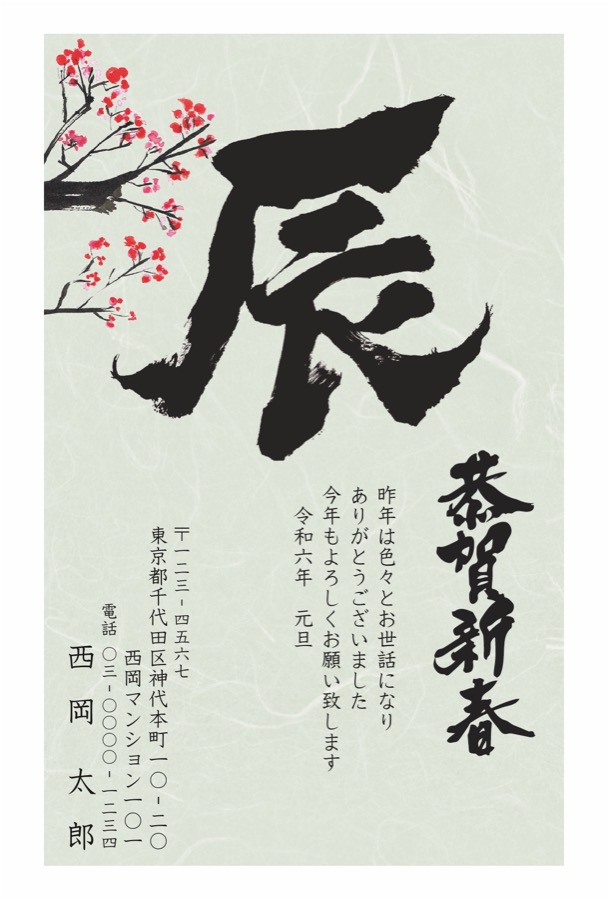 辰
恭賀新春
昨年は色々とお世話になり
ありがとうございました
今年もよろしくお願い致します
令和六年　元旦
〒一二三-四五六七
東京都千代田区神代本町一〇-二〇
西岡マンション一〇一
電話　〇三-〇〇〇〇-一二三四
西岡太郎